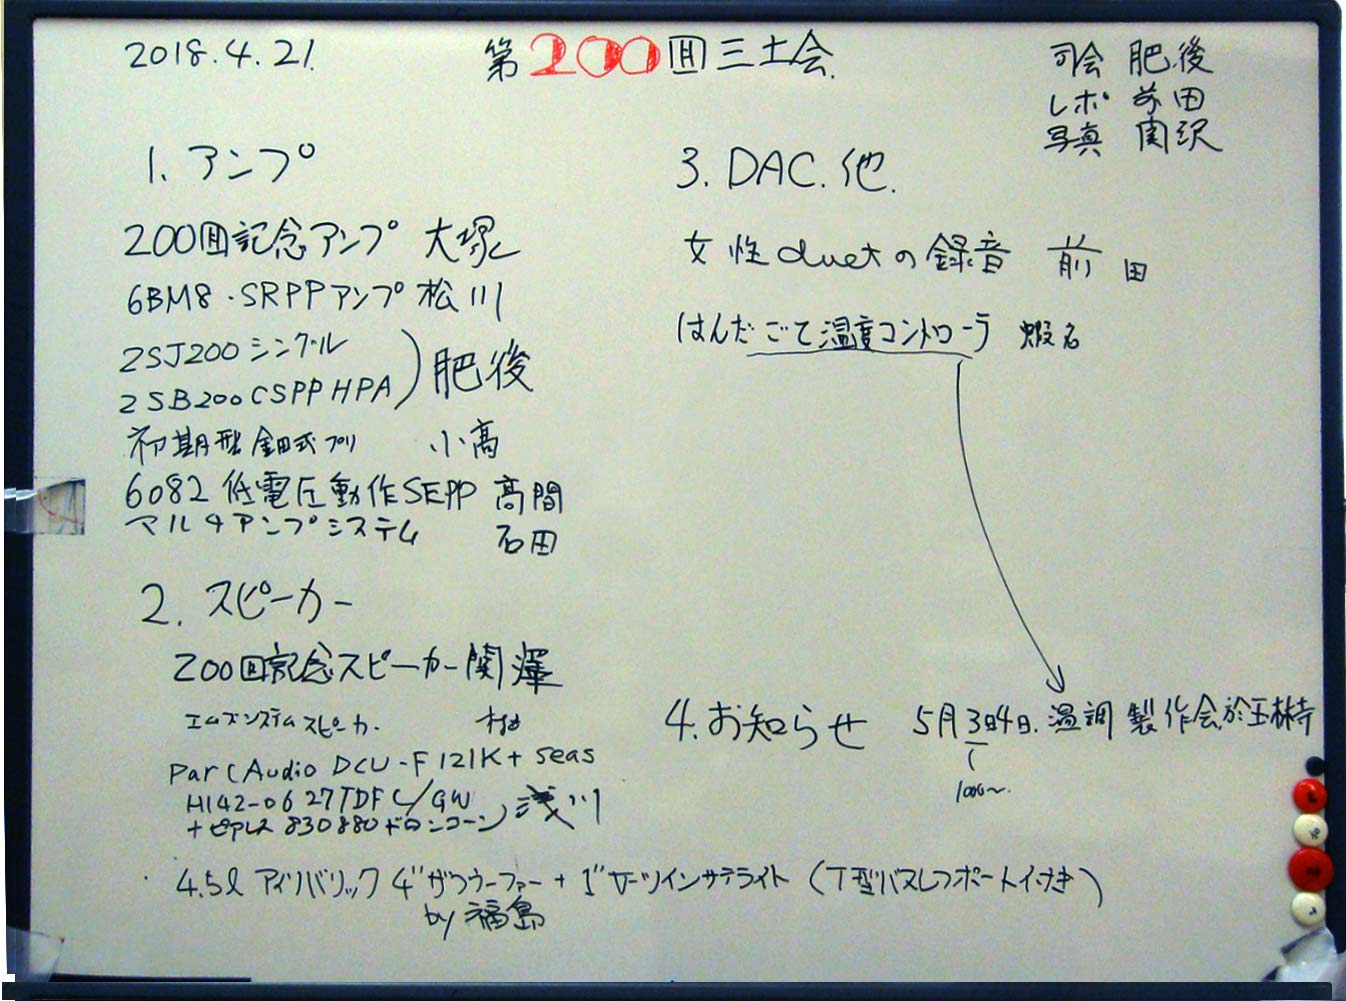 2018.4.21.
第200回三土会
司会 肥後
レポ 前田
写真 関沢
1. アンプ
200回記念アンプ 大塚
6BM8・SRPPアンプ 松川
2SJ200 シングル
2SB200 CSPP HPA) 肥後
初期型金田式プリ 小高
6082 低電圧動作SEPP 高間
マルチアンプシステム 石田
2. スピーカー
200回記念スピーカー 関澤
エムズシステムスピーカ.
Parc Audio DCU-F121K + seas
H142-06 27TDFC/GW
+ピアレス 830880ドロンコーン) 浅川
4.5l アイソバリック 4"サブウーファー + 1" ツインサテライト (T型バスレフポート付き)
by 福島
3. DAC. 他.
女性duetの録音 前田
はんだごて温度コントローラ 蝦名
4. お知らせ 5月3日4日. 温調 製作会 於玉林寺